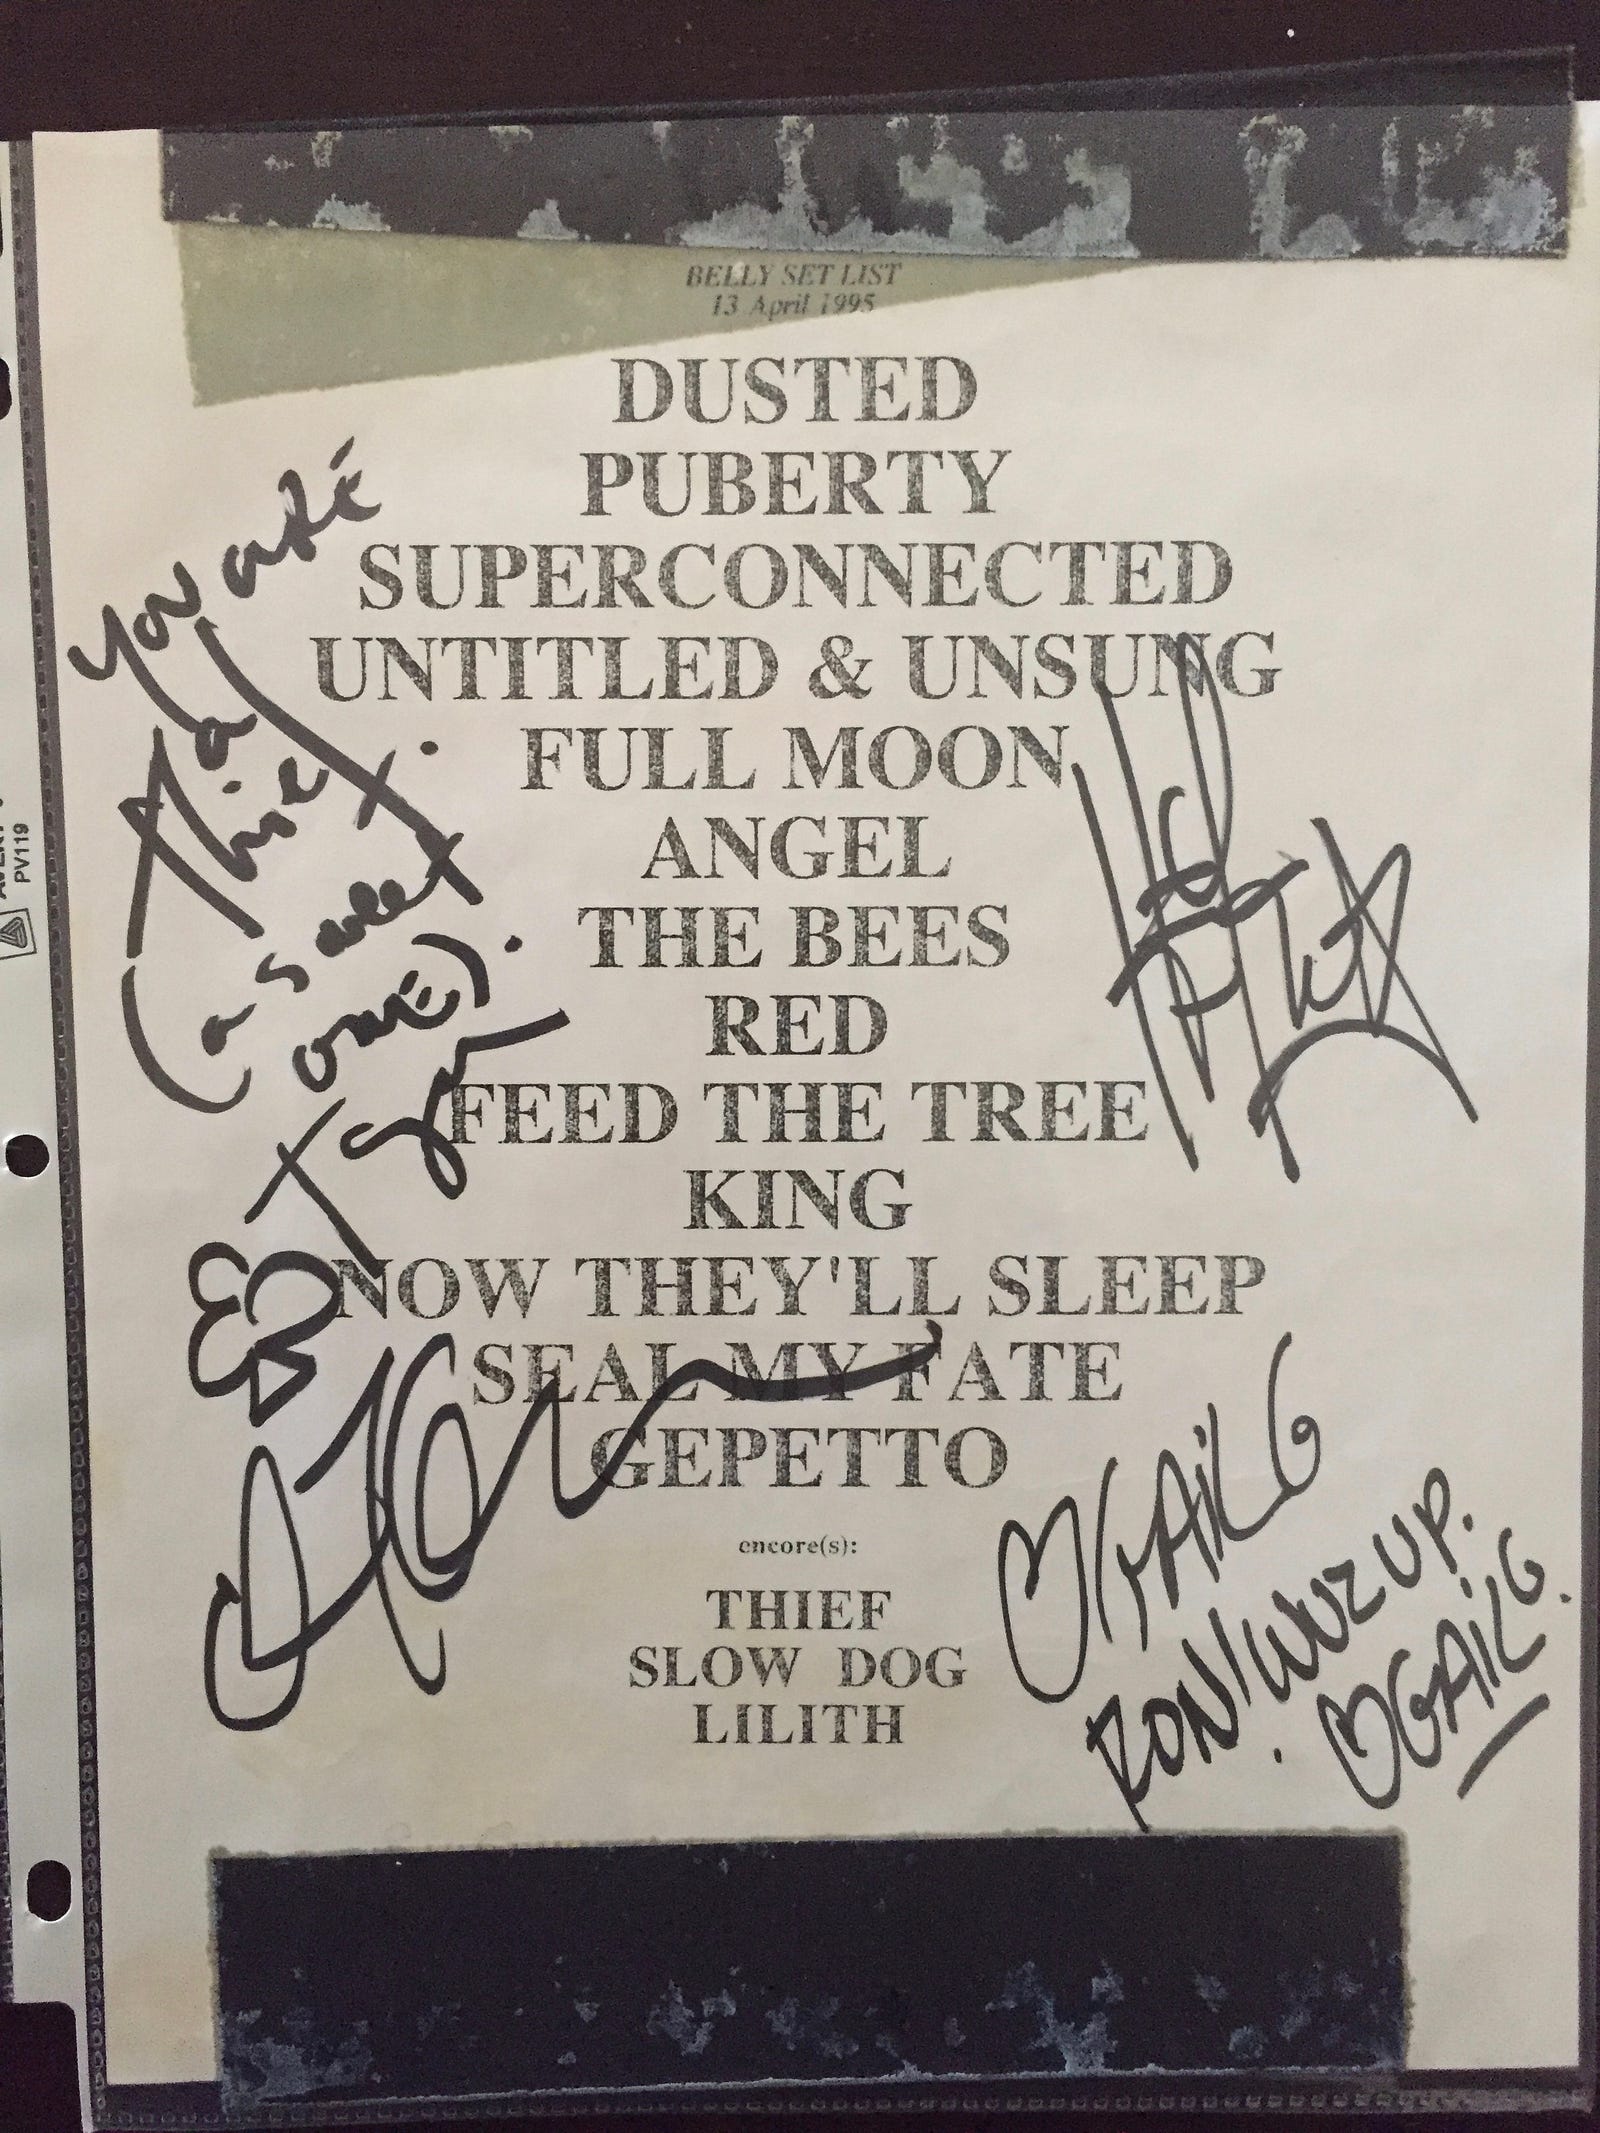 BELLY SET LIST
13 April 1995
DUSTED
PUBERTY
SUPERCONNECTED
UNTITLED & UNSUNG
FULL MOON
ANGEL
THE BEES
RED
FEED THE TREE
KING
NOW THEY'LL SLEEP
SEAL MY FATE
GEPETTO
encore(s):
THIEF
SLOW DOG
LILITH
YOU ARE
a
Thief
(a sweet
one).
GAIL G
RON! WUZ UP.
GAIL G.
PV119